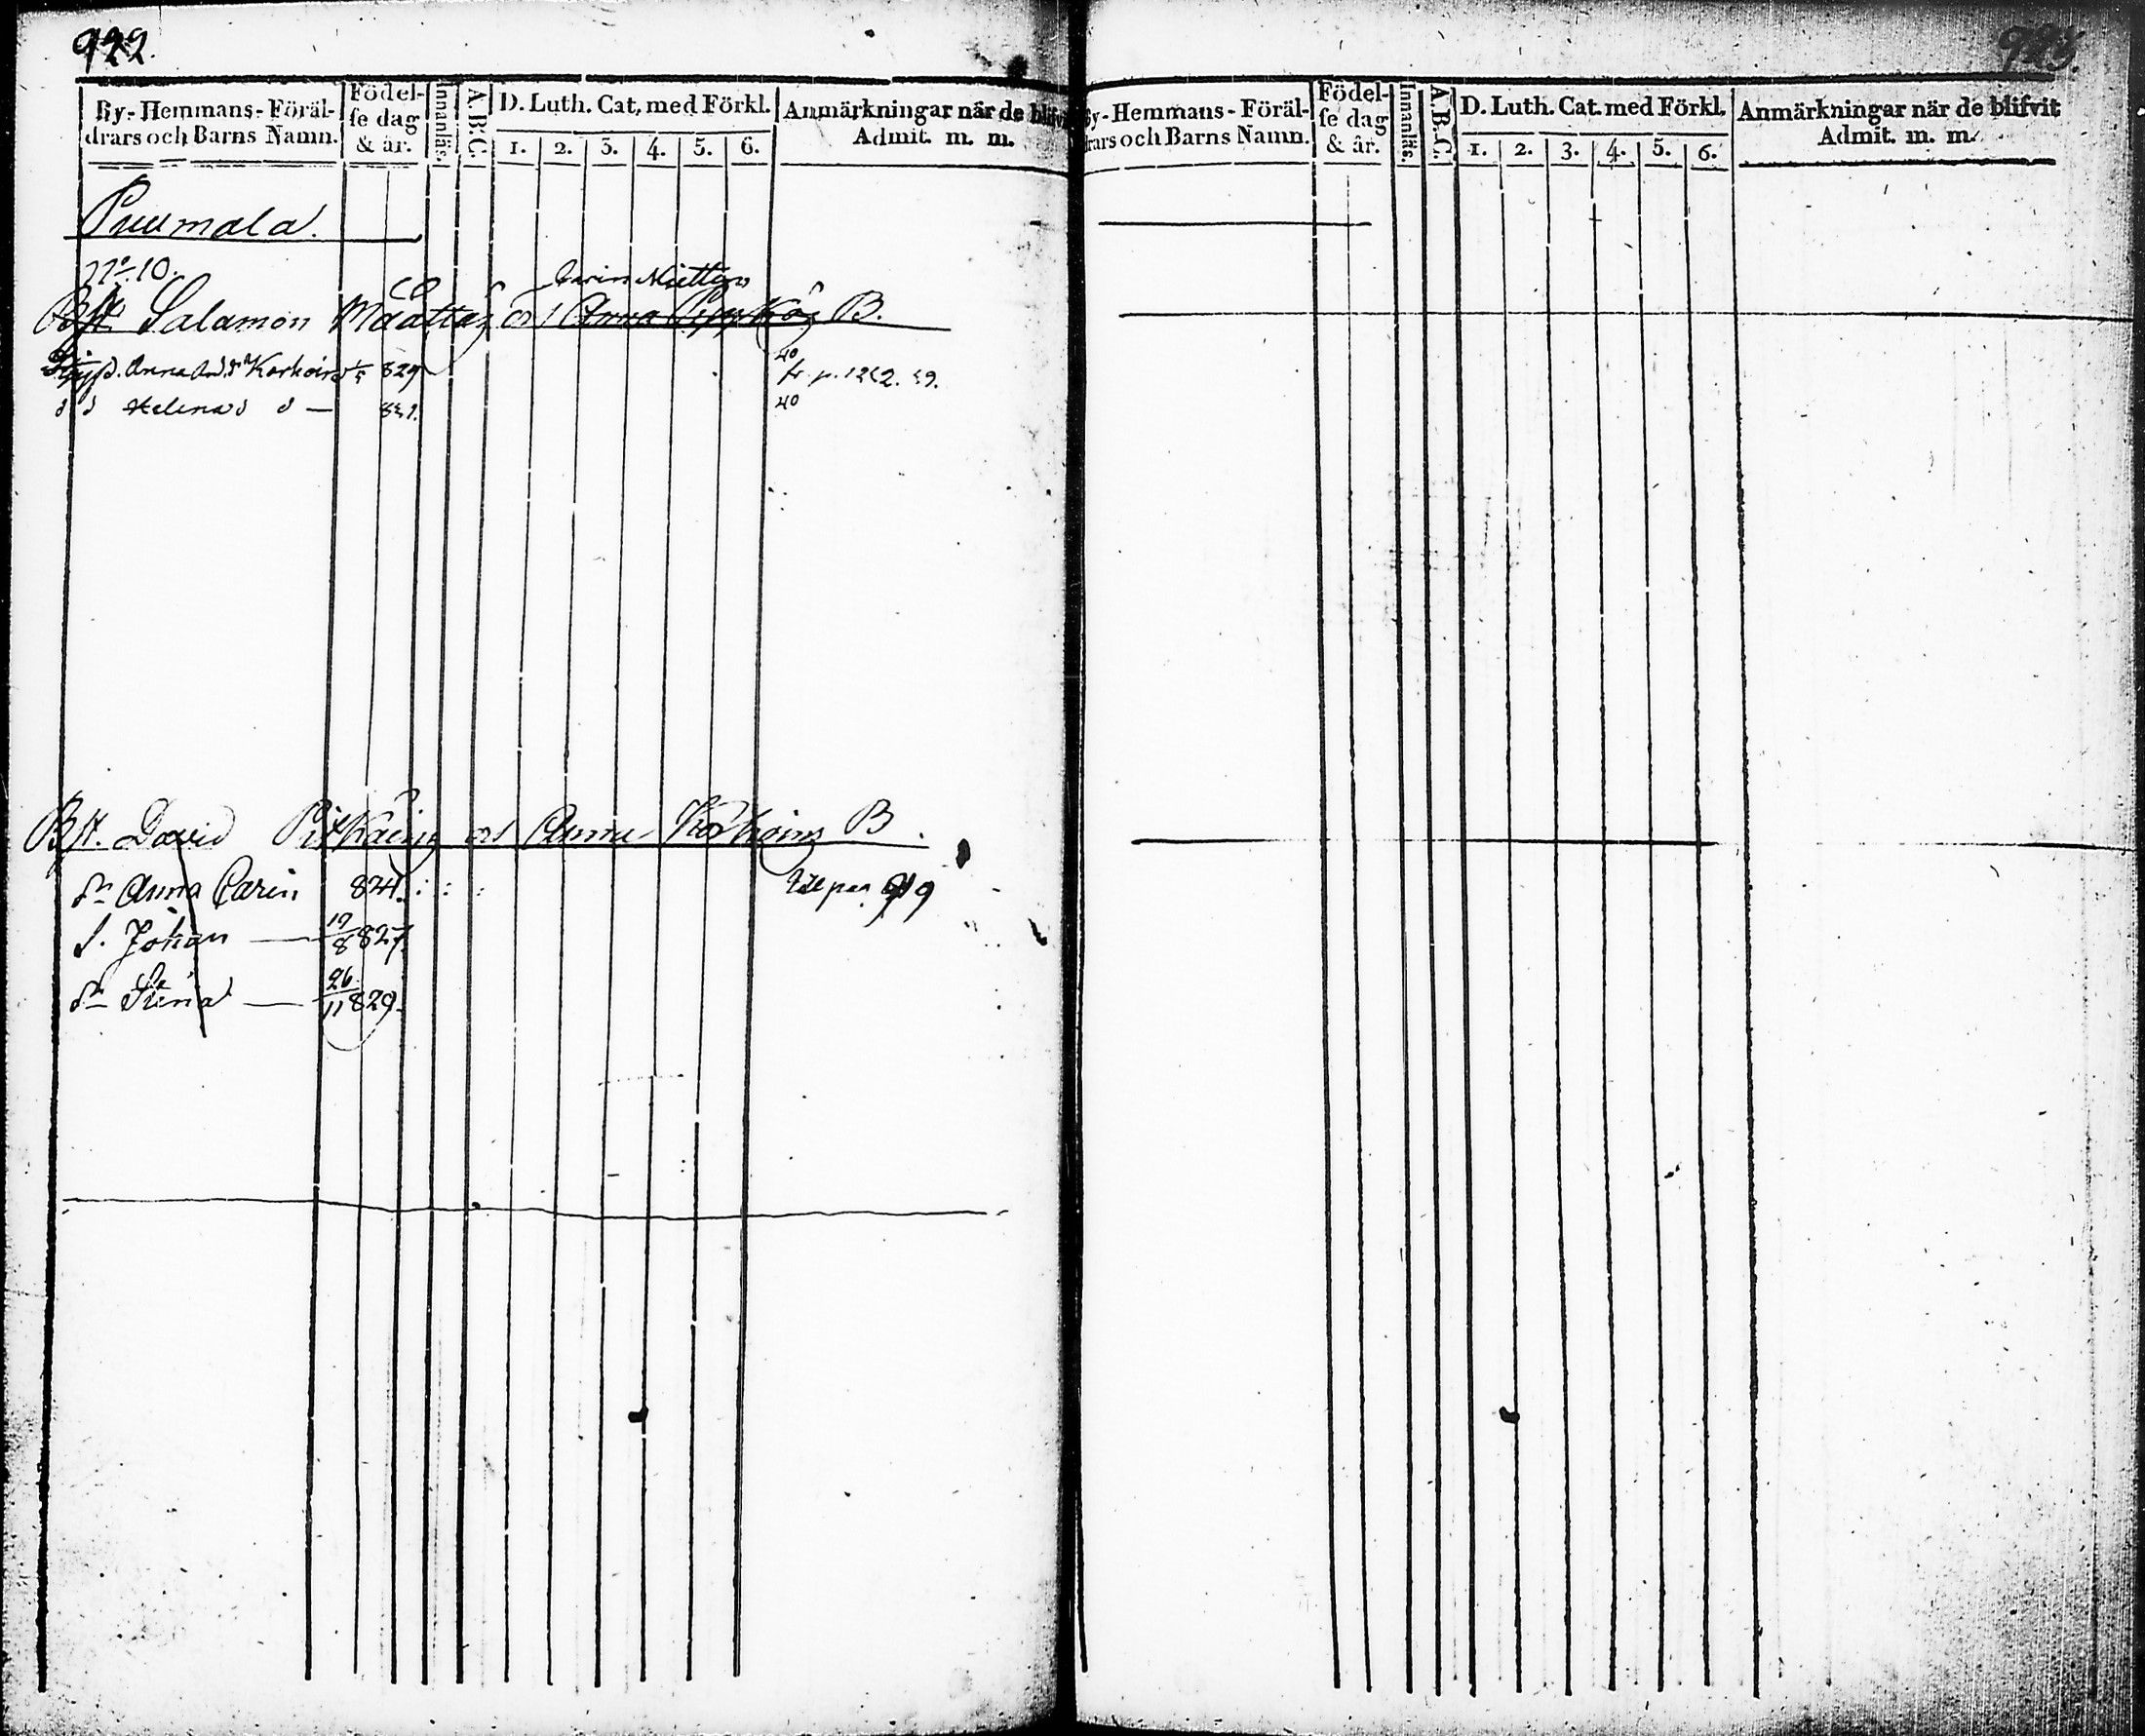 922.
By-Hemmans-Föräl-
drars och Barns Namn.
Födel-
se dag
& år.
Innanläs.
A.B.C.
D. Luth. Cat, med Förkl.
1. 2. 3. 4. 5. 6.
Anmärkningar när de blifv
Admit. m. m.
Puumala.
No. 10.
Carin Mietty
Bst Salamon Määttä o Anna B.
Anna And. Korhoi 829 fr. p.
40
Helena
40
Bst. David Pitkäin o Anna Korhoin B.
Dr Anna Carin 824. : : : Se pag. 919
S. Johan — 19/8 827
Dr Stina — 26/11 829.
923.
By-Hemmans-Föräl-
rars och Barns Namn.
Födel-
se dag
& år.
Innanläs.
A.B.C.
D. Luth. Cat. med Förkl.
1. 2. 3. 4. 5. 6.
Anmärkningar när de blifvit
Admit. m. m.